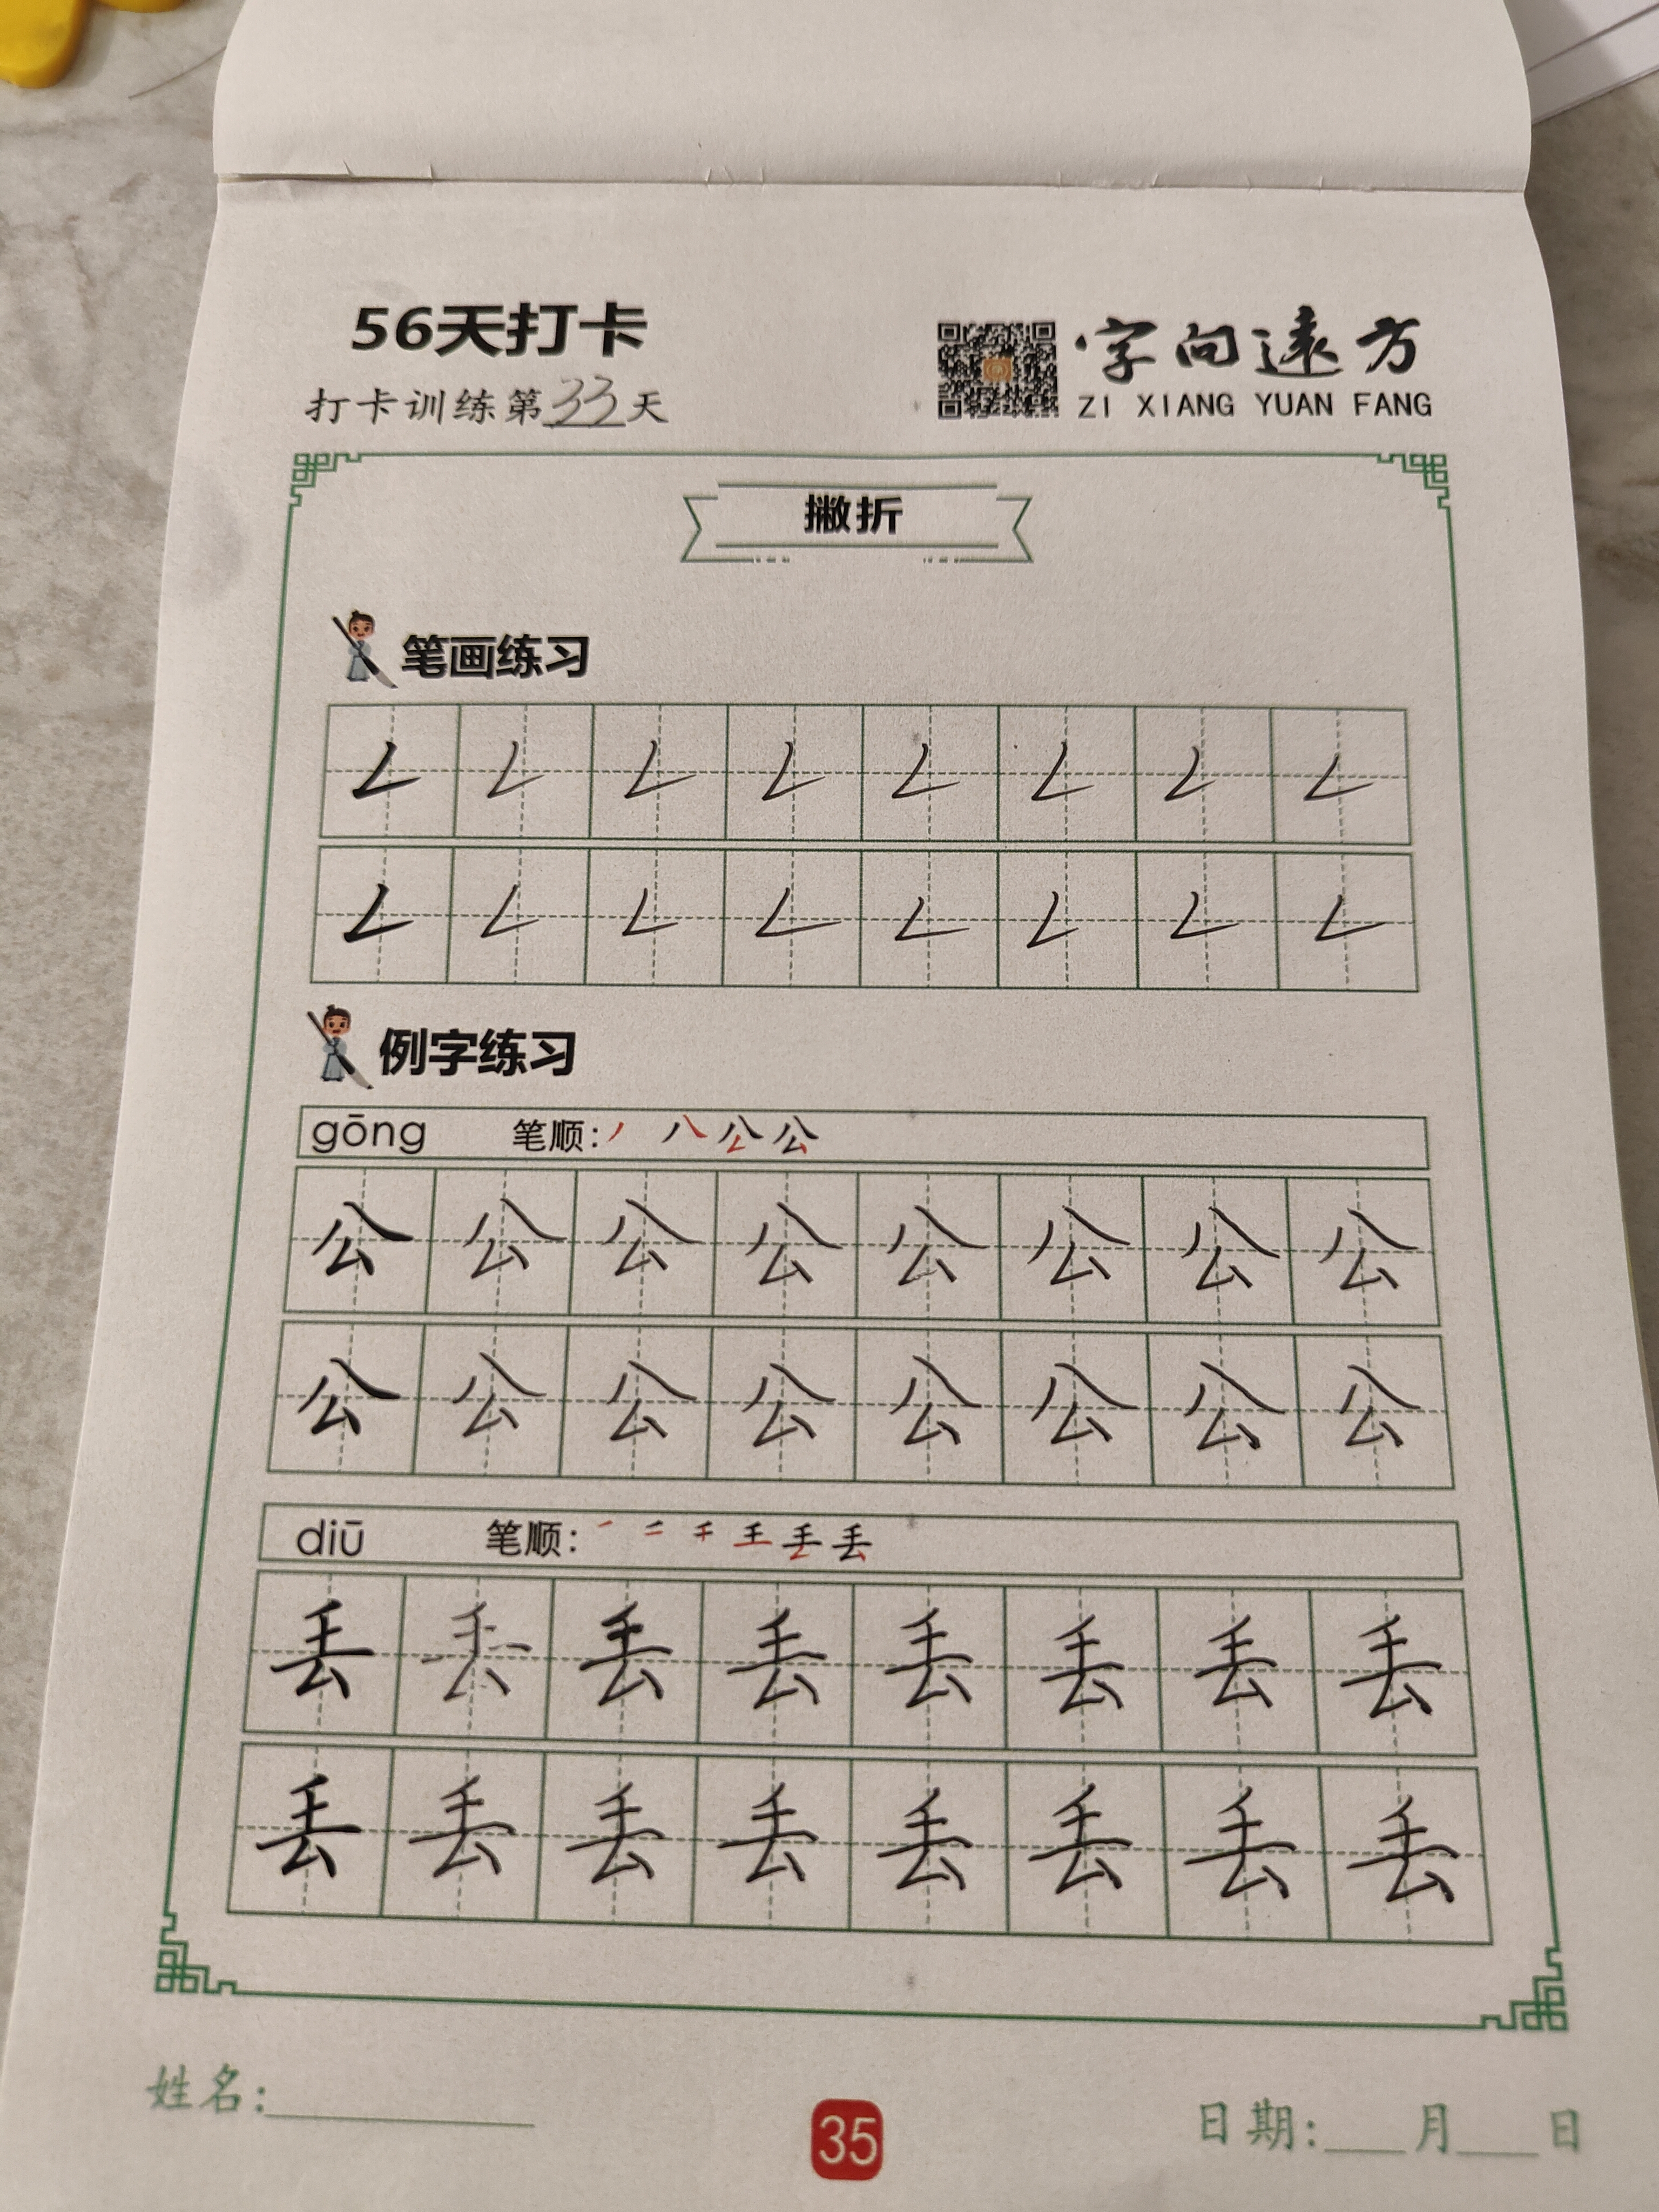 56天打卡
打卡训练第33天
字向遠方
ZI XIANG YUAN FANG
撇折
笔画练习
𠃋 𠃋 𠃋 𠃋 𠃋 𠃋 𠃋 𠃋
𠃋 𠃋 𠃋 𠃋 𠃋 𠃋 𠃋 𠃋
例字练习
gōng 笔顺:丿 八 公 公
公 公 公 公 公 公 公 公
公 公 公 公 公 公 公 公
diū 笔顺:一 二 千 王 丢 丢
丢 丢 丢 丢 丢 丢 丢 丢
丢 丢 丢 丢 丢 丢 丢 丢
姓名:
35
日期: 月 日